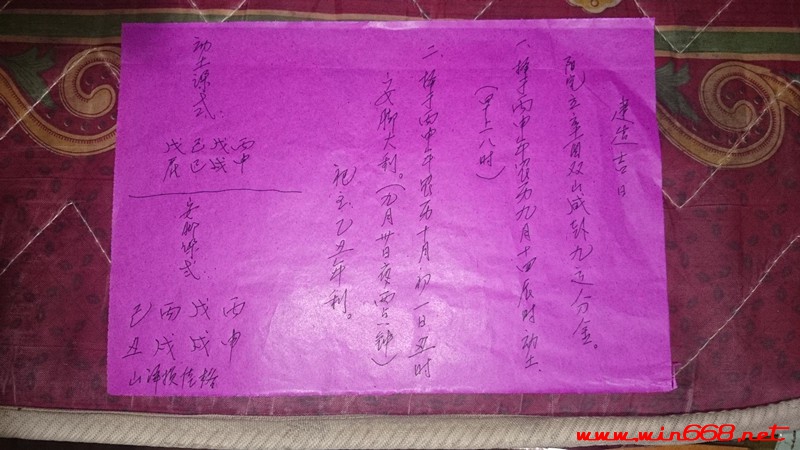 建造吉日
阳宅立辛酉双山咸卦九运分金。
一、择于丙申年农历九月十四辰时动土
(早上八时)
二、择于丙申年农历十月初一日丑时
安脚大利。(九月卅日夜两点钟)
祀主乙丑年利。
动土课式
丙 戊 己 戊
申 戌 巳 辰
安脚课式
丙 戊 丙 己
申 戌 戌 丑
www.win668.net